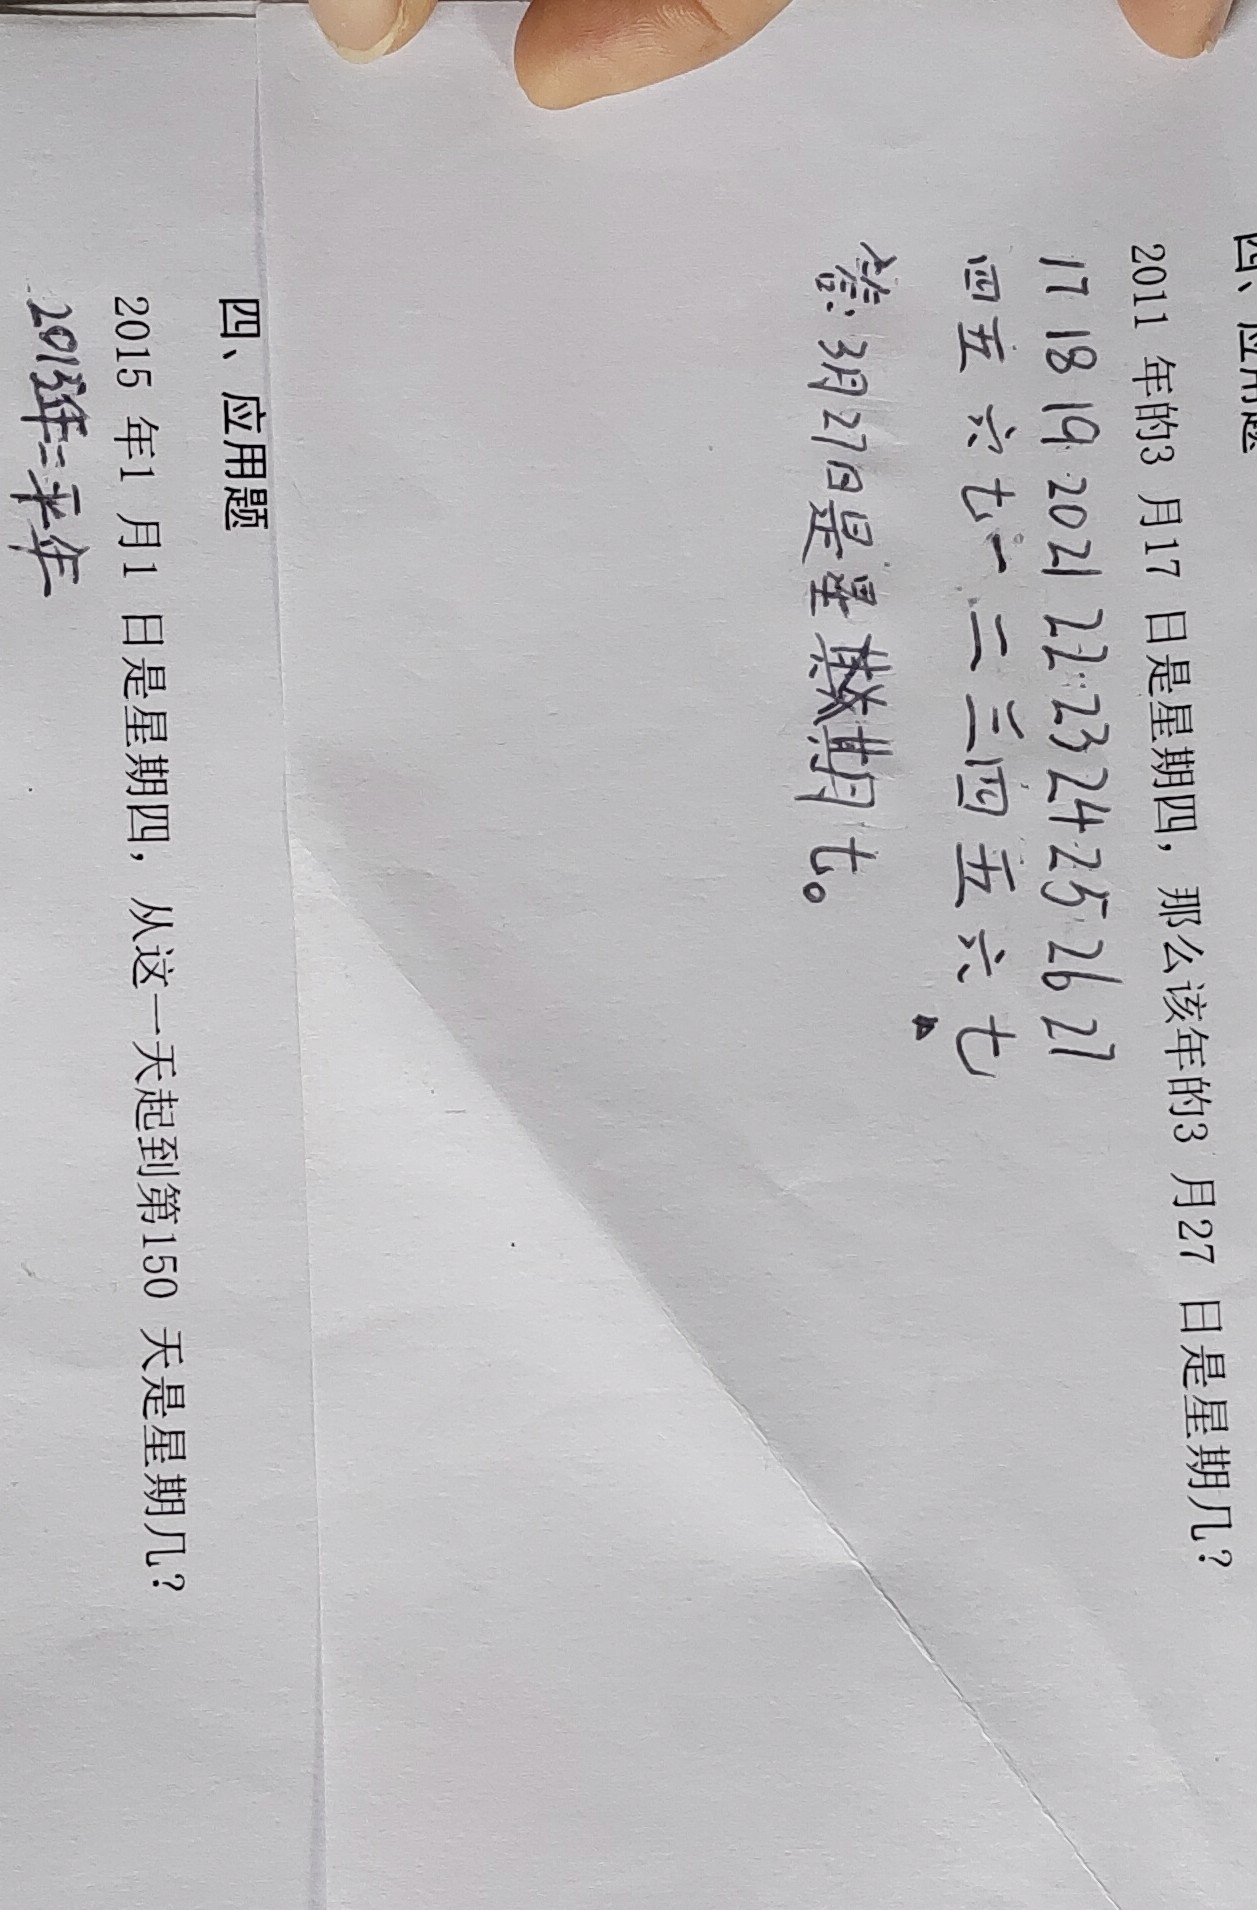 四、应用题
2011 年的3 月17 日是星期四，那么该年的3 月27 日是星期几？
17 18 19 20 21 22 23 24 25 26 27
四 五 六 七 一 二 三 四 五 六 七
答：3月27日是星期七。
四、应用题
2015 年1 月1 日是星期四，从这一天起到第150 天是星期几？
2015年=平年